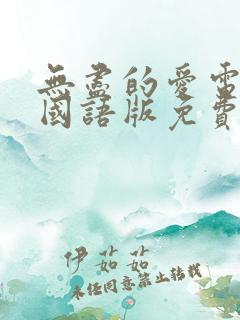 無盡的愛電
國語版免費
伊茹茹
未經同意禁止轉載